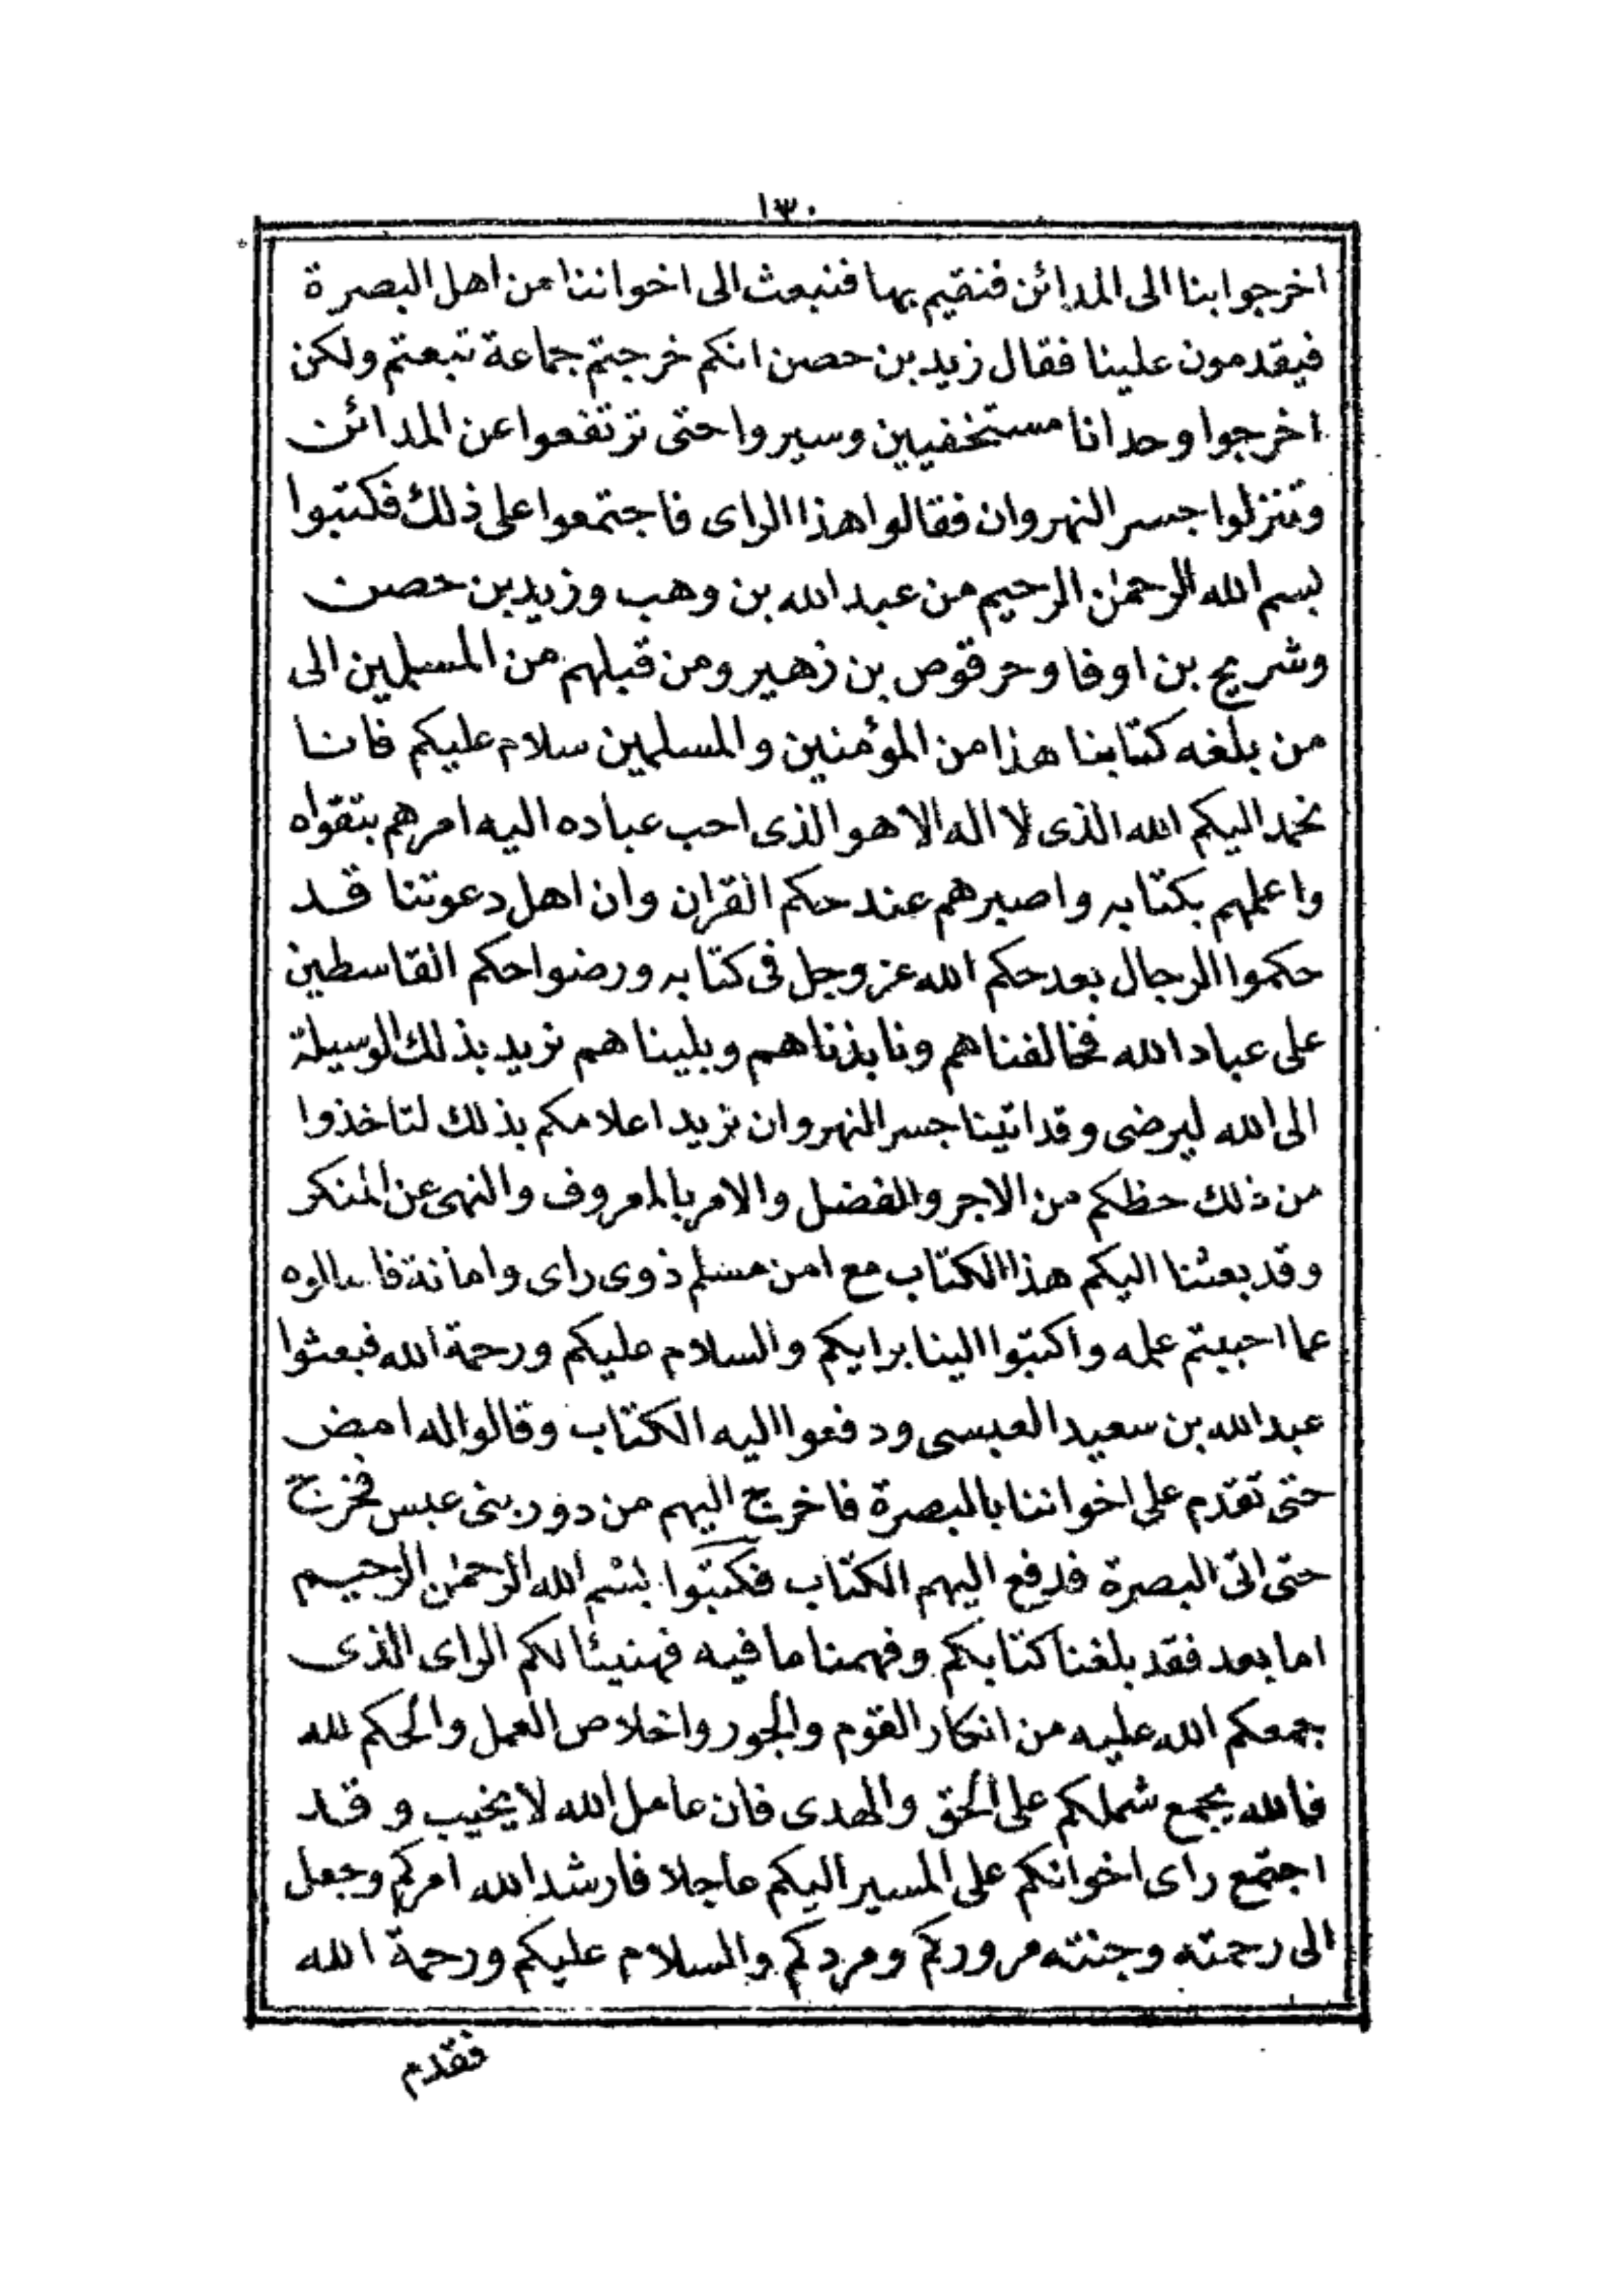 ١٣٠
اخرجوا بنا الى المدائن فنقيم بها فنبعث الى اخواننا من اهل البصرة
فيقدمون علينا فقال زيد بن حصن انكم خرجتم جماعة تبعتم ولكن
اخرجوا وحدانا مستخفيين وسيروا حتى ترتفعوا عن المدائن
وتنزلوا جسر النهروان فقالوا هذا الراى فاجتمعوا على ذلك فكتبوا
بسم الله الرحمٰن الرحيم من عبد الله بن وهب وزيد بن حصن
وشريح بن اوفا وحرقوص بن زهير ومن قبلهم من المسلمين الى
من بلغه كتابنا هذا من المؤمنين والمسلمين سلام عليكم فانا
نحمد اليكم الله الذى لا اله الا هو الذى احب عباده اليه امرهم بتقواه
واعملهم بكتابه واصبرهم عند حكم القران وان اهل دعوتنا قد
حكموا الرجال بعد حكم الله عز وجل فى كتابه ورضوا حكم القاسطين
على عباد الله فخالفناهم ونابذناهم وبليناهم نريد بذلك الوسيلة
الى الله ليرضى وقد اتينا جسر النهروان نريد اعلامكم بذلك لتاخذوا
من ذلك حظكم من الاجر والفضل والامر بالمعروف والنهى عن المنكر
وقد بعثنا اليكم هذا الكتاب مع امن مسلم ذوى راى وامانة فاسالوه
عما احببتم علمه واكتبوا الينا برايكم والسلام عليكم ورحمة الله فبعثوا
عبد الله بن سعيد العبسى ودفعوا اليه الكتاب وقالوا له امض
حتى تقدم على اخواننا بالبصرة فاخرج اليهم من دور بنى عبس فخرج
حتى اتى البصرة فدفع اليهم الكتاب فكتبوا بسم الله الرحمٰن الرحيم
اما بعد فقد بلغنا كتابكم وفهمنا ما فيه فهنيئا لكم الراى الذى
جمعكم الله عليه من انكار القوم والجور واخلاص العمل والحكم لله
فالله يجمع شملكم على الحق والهدى فان عامل الله لا يخيب وقد
اجتمع راى اخوانكم على المسير اليكم عاجلا فارشد الله امركم وجعل
الى رحمته وجنته مروركم ومردكم والسلام عليكم ورحمة الله
فقدم